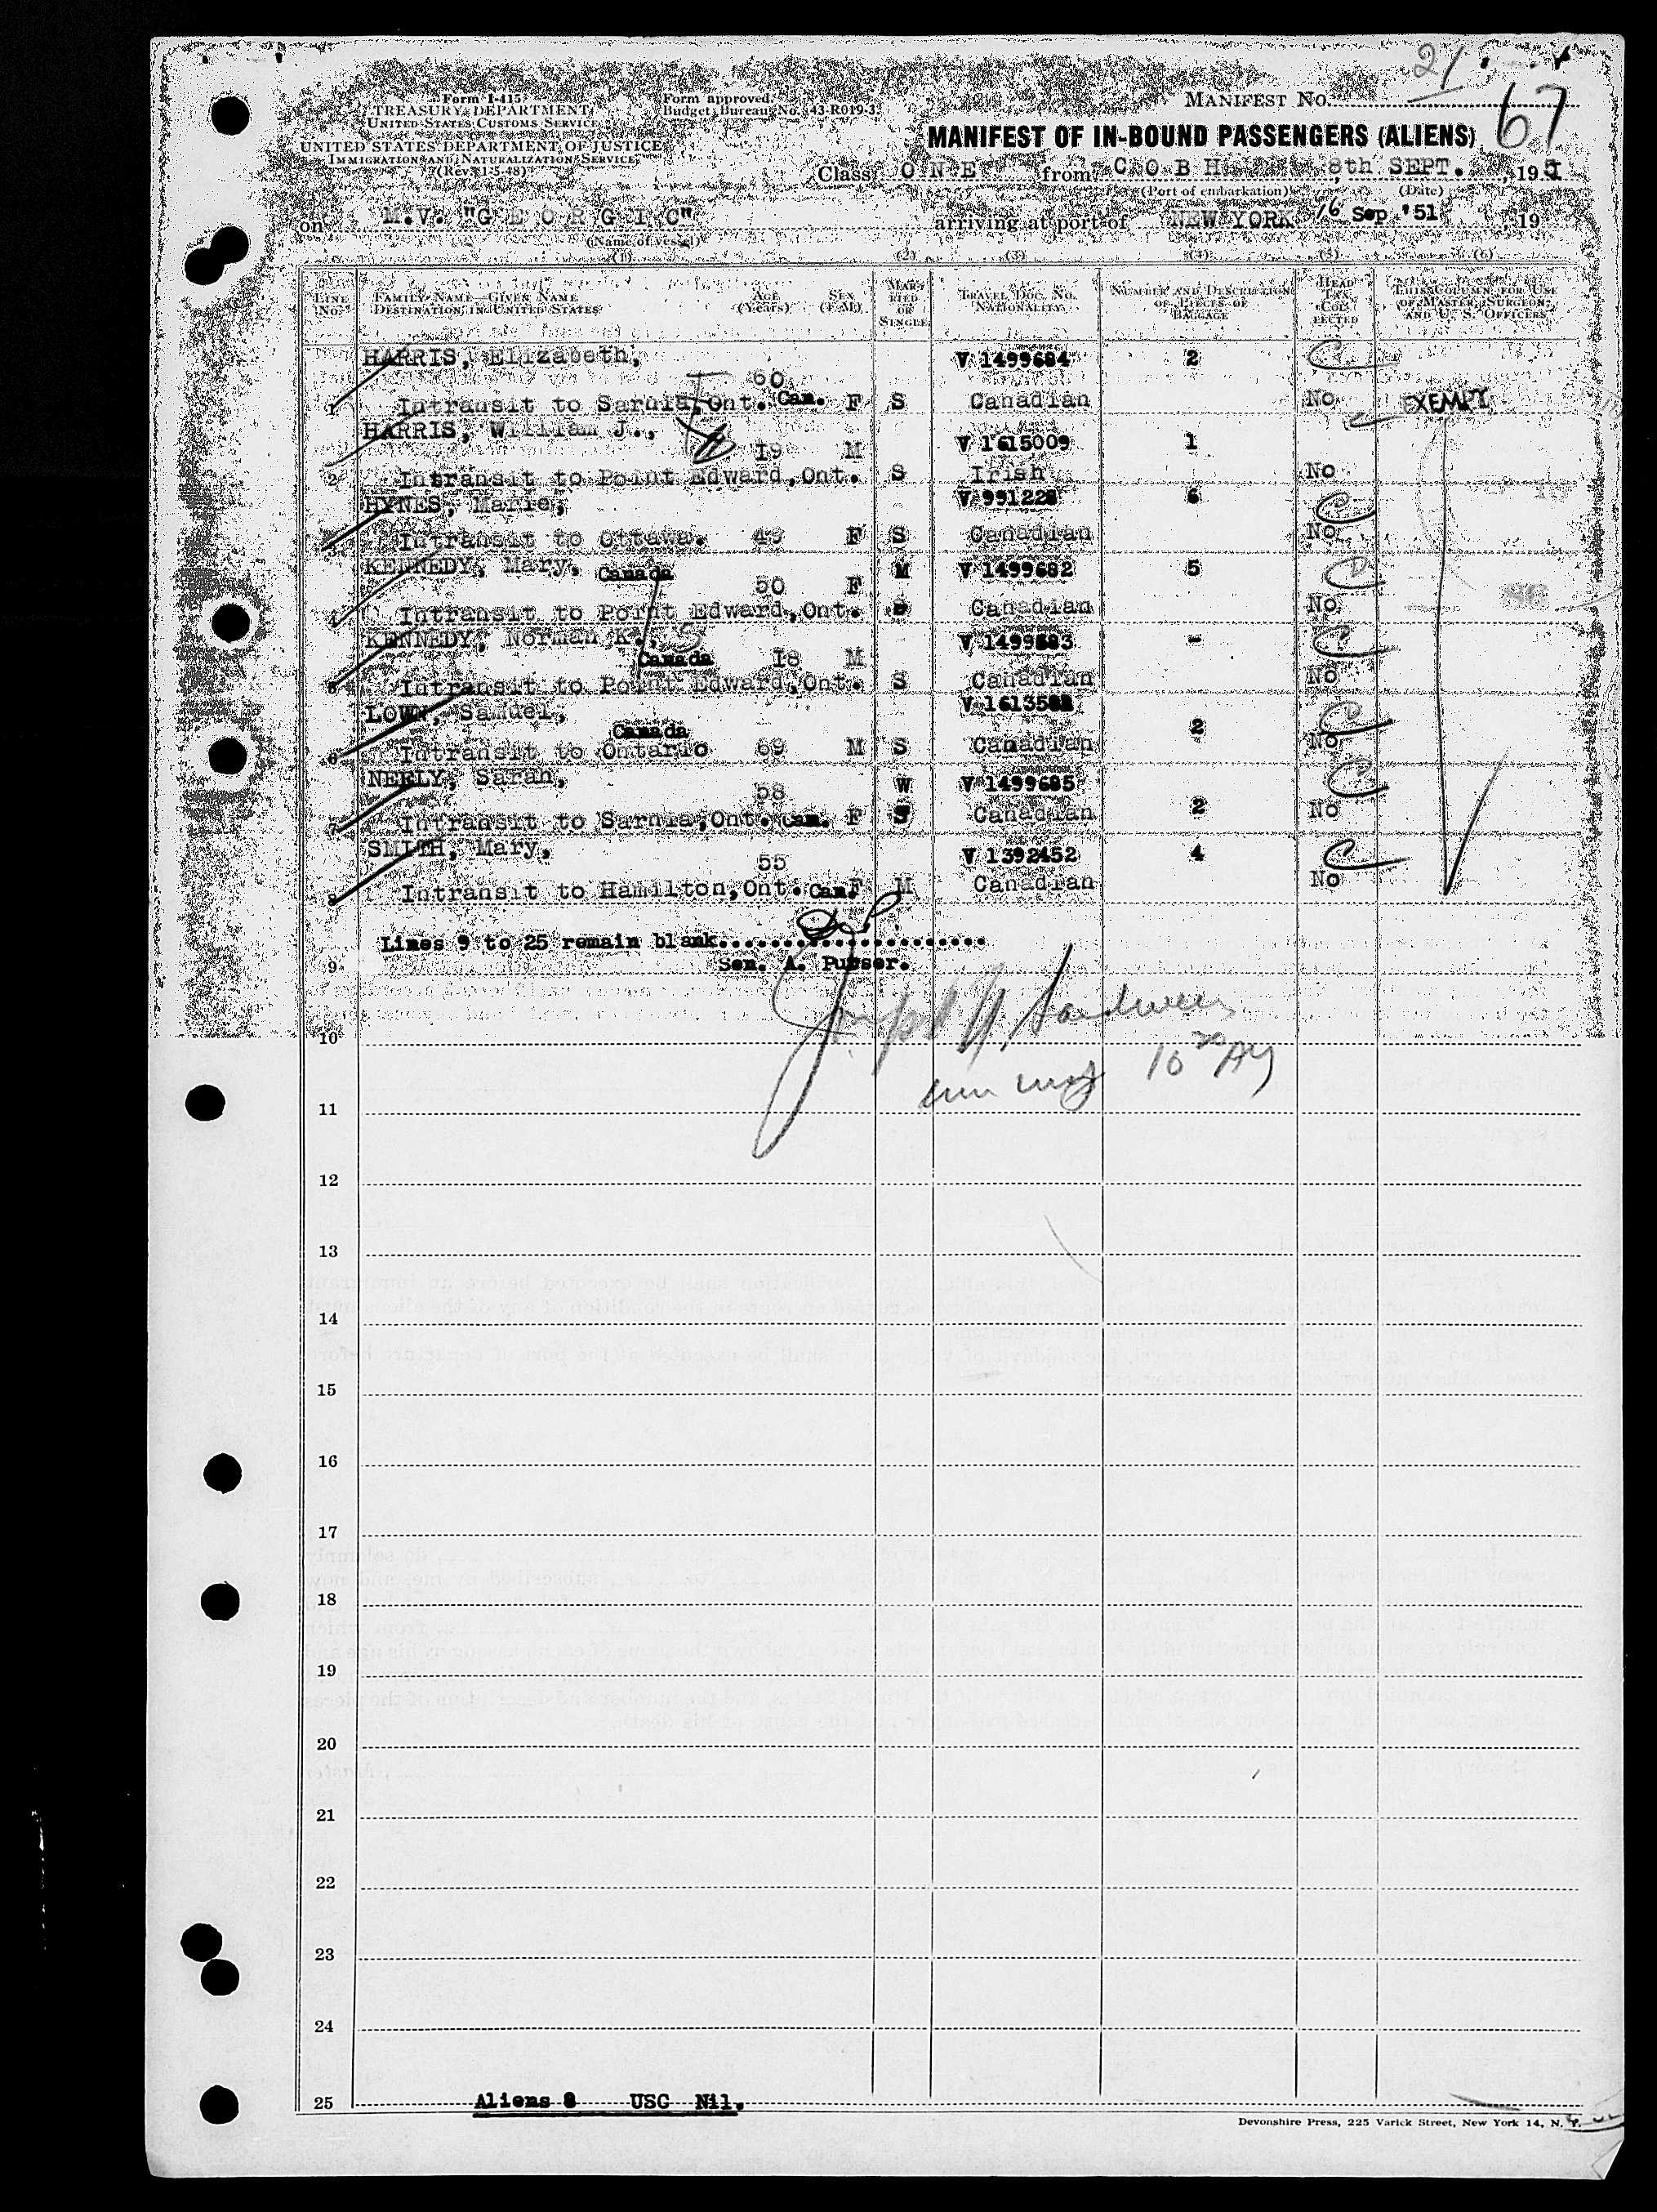 21
67
Form I-415
TREASURY DEPARTMENT
UNITED STATES CUSTOMS SERVICE
UNITED STATES DEPARTMENT OF JUSTICE
IMMIGRATION AND NATURALIZATION SERVICE
(Rev. 1-5-48)
Form approved.
Budget Bureau No. 43-R019-3.
MANIFEST NO.
MANIFEST OF IN-BOUND PASSENGERS (ALIENS)
Class ONE from COBH, 8th SEPT., 1951
(Port of embarkation) (Date)
on M.V. "GEORGIC" arriving at port of NEW YORK 16 Sep '51, 19
(Name of vessel)
(1) (2) (3) (4) (5) (6)
LINE NO.
FAMILY NAME—GIVEN NAME
DESTINATION IN UNITED STATES
AGE (Years)
SEX (F-M)
MARRIED OR SINGLE
TRAVEL DOC. NO.
NATIONALITY
NUMBER AND DESCRIPTION OF PIECES OF BAGGAGE
HEAD TAX COLLECTED
THIS COLUMN FOR USE OF MASTER, SURGEON, AND U. S. OFFICERS
HARRIS, Elizabeth, V 1499684 2 C
60
1 Intransit to Sarnia, Ont. Can. F S Canadian No EXEMPT
HARRIS, William J., 19 M V 1615009 1
2 Intransit to Point Edward, Ont. S Irish No
HYNES, Marie, V 6 C
3 Intransit to Ottawa. 49 F S Canadian No
KENNEDY, Mary, Canada 50 F M V 1499682 5 C
4 Intransit to Point Edward, Ont. Canadian No
KENNEDY, Norman K., V 1499683 - C
Canada 18 M
5 Intransit to Point Edward, Ont. S Canadian No
LOWN, Samuel, V C
Canada 2
6 Intransit to Ontario 69 M S Canadian No
NEELY, Sarah, 58 W V 1499685 C
7 Intransit to Sarnia, Ont. Can. F S Canadian 2 No
SMITH, Mary, 55 V 1392452 4 C
8 Intransit to Hamilton, Ont. Can. F M Canadian No
Lines 9 to 25 remain blank.
9 Sen. A. Purser.
10
11
12
13
14
15
16
17
18
19
20
21
22
23
24
25 Aliens 8 USC Nil.
Devonshire Press, 225 Varick Street, New York 14, N. Y.